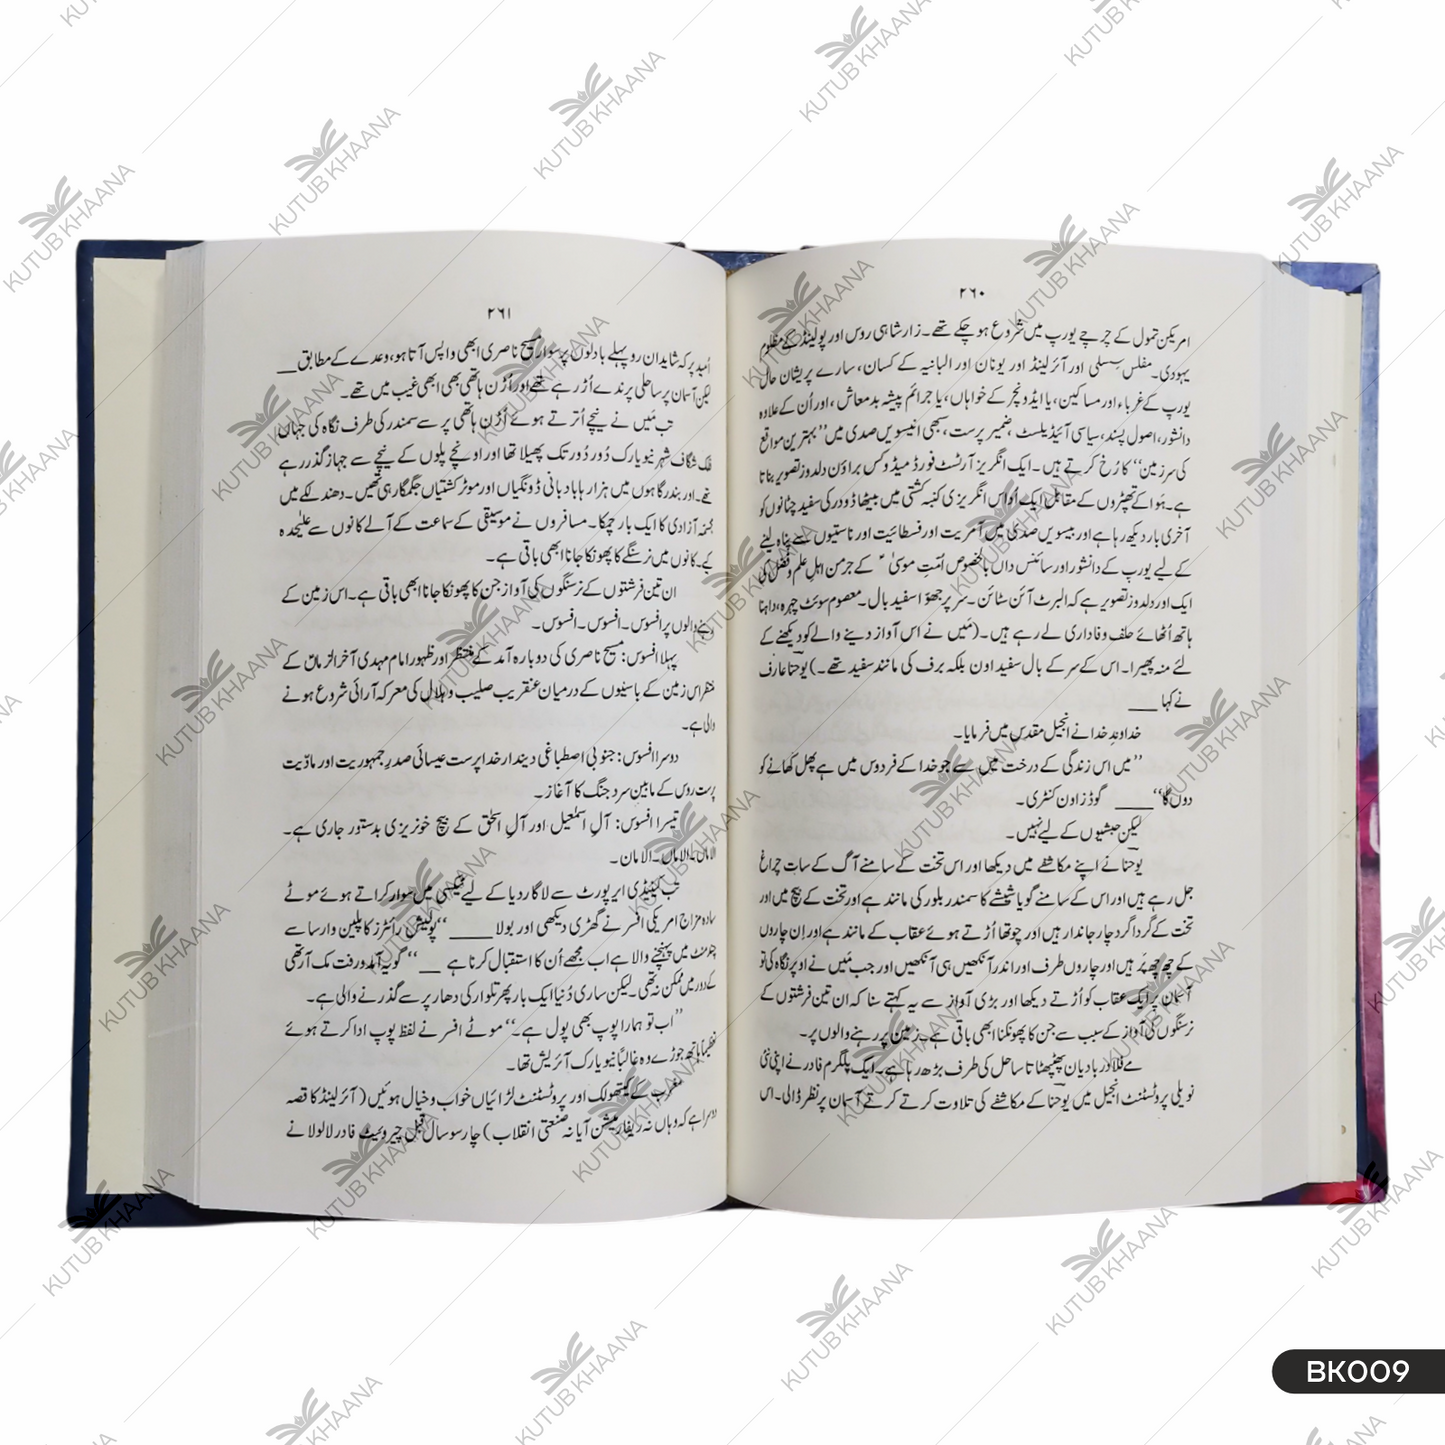 ۲۶۰
امریکن تمول کے چرچے یورپ میں شروع ہو چکے تھے۔ زار شاہی روس اور پولینڈ کے مظلوم
یہودی۔ مفلس سسلی اور آئرلینڈ اور یونان اور البانیہ کے کسان، سارے پریشان حال
یورپ کے غرباء اور مساکین، یا ایڈونچر کے خواہاں، یا جرائم پیشہ بدمعاش، اور اُن کے علاوہ
دانشور، اصول پسند، سیاسی آئیڈیلسٹ، ضمیر پرست، بھی انیسویں صدی میں ”بہترین مواقع
کی سرزمین“ کا رُخ کرتے ہیں۔ ایک انگریز آرٹسٹ فورڈ میڈوکس براؤن دلدوز تصویر بناتا
ہے۔ ہَوا کے تھپڑوں کے مقابل ایک اُداس انگریزی کنبہ کشتی میں بیٹھا ڈوور کی سفید چٹانوں کو
آخری بار دیکھ رہا ہے اور بیسویں صدی میں آمریت اور فسطائیت اور ناتسیوں سے پناہ لینے
کے لیے یورپ کے دانشور اور سائنس داں بالخصوص اُمتِ موسیٰؑ کے جرمن اہلِ علم و فضل کی
ایک اور دلدوز تصویر ہے کہ البرٹ آئن سٹائن۔ سر پر جھوّا سفید بال۔ معصوم سوئٹ چہرہ، داہنا
ہاتھ اُٹھائے حلف وفاداری لے رہے ہیں۔ (مَیں نے اس آواز دینے والے کو دیکھنے کے
لئے منہ پھیرا۔ اس کے سر کے بال سفید اون بلکہ برف کی مانند سفید تھے۔) یوحنّا عارف
نے کہا ___
خداوندِ خدا نے انجیل مقدس میں فرمایا۔
”میں اس زندگی کے درخت میں سے جو خدا کے فردوس میں ہے پھل کھانے کو
دوں گا“ ____ گوڈز اون کنٹری۔
لیکن حبشیوں کے لیے نہیں۔
یوحنّا نے اپنے مکاشفے میں دیکھا اور اس تخت کے سامنے آگ کے سات چراغ
جل رہے ہیں اور اس کے سامنے گویا شیشے کا سمندر بلور کی مانند ہے اور تخت کے بیچ میں اور
تخت کے گرداگرد چار جاندار ہیں اور چوتھا اُڑتے ہوئے عقاب کے مانند ہے اور اِن چاروں
کے چھ چھ پَر ہیں اور چاروں طرف اور اندر آنکھیں ہی آنکھیں اور جب مَیں نے اوپر نگاہ کی تو
آسمان پر ایک عقاب کو اُڑتے دیکھا اور بڑی آواز سے یہ کہتے سنا کہ ان تین فرشتوں کے
نرسنگوں کی آواز کے سبب سے جن کا پھونکنا ابھی باقی ہے۔ زمین پر رہنے والوں پر۔
مے فلاور بادیان پھٹپھٹاتا ساحل کی طرف بڑھ رہا ہے۔ ایک پلگرم فادر نے اپنی نئی
نویلی پروٹسٹنٹ انجیل میں یوحنّا کے مکاشفے کی تلاوت کرتے کرتے آسمان پر نظر ڈالی۔ اس
۲۶۱
اُمید پر کہ شاید ان روپہلے بادلوں پر سوار مسیح ناصری ابھی واپس آتا ہو، وعدے کے مطابق __
لیکن آسمان پر ساحلی پرندے اُڑ رہے تھے اور اُڑن ہاتھی بھی ابھی غیب میں تھے۔
تب مَیں نے نیچے اُترتے ہوئے اُڑن ہاتھی پر سے سمندر کی طرف نگاہ کی جہاں
فلک شگاف شہر نیویارک دُور دُور تک پھیلا تھا اور اونچے پلوں کے نیچے سے جہاز گذر رہے
تھے۔ اور بندرگاہوں میں ہزارہا بادبانی ڈونگیاں اور موٹر کشتیاں جگمگا رہی تھیں۔ دھندلکے میں
مجسمہ آزادی کا ایک بار چمکا۔ مسافروں نے موسیقی کے سماعت کے آلے کانوں سے علیٰحدہ
کیے۔ کانوں میں نرسنگے کا پھونکا جانا ابھی باقی ہے۔
ان تین فرشتوں کے نرسنگوں کی آواز جن کا پھونکا جانا ابھی باقی ہے۔ اس زمین کے
رہنے والوں پر افسوس۔ افسوس۔ افسوس۔
پہلا افسوس: مسیح ناصری کی دوبارہ آمد کے منتظر اور ظہور امام مہدی آخرالزماںؑ کے
منتظر اس زمین کے باسنیوں کے درمیان عنقریب صلیب و ہلال کی معرکہ آرائی شروع ہونے
والی ہے۔
دوسرا افسوس: جنوبی اصطباغی دیندار خدا پرست عیسائی صدرِ جمہوریت اور مادّیت
پرست روس کے مابین سرد جنگ کا آغاز۔
تیسرا افسوس: آلِ اسمٰعیل اور آلِ اسحٰق کے بیچ خونریزی بدستور جاری ہے۔
الامان۔ الاماں۔ الامان۔
تب کینیڈی ایرپورٹ سے لاگارڈیا کے لیے ٹیکسی میں سوار کراتے ہوئے موٹے
سادہ مزاج امریکی افسر نے گھڑی دیکھی اور بولا ____ ”پولیش رائٹرز کا پلین وارسا سے
چند منٹ میں پہنچنے والا ہے اب مجھے اُن کا استقبال کرنا ہے __“ گو یہ آمد و رفت مک آرتھی
کے دور میں ممکن نہ تھی۔ لیکن ساری دُنیا ایک بار پھر تلوار کی دھار پر سے گذرنے والی ہے۔
”اب تو ہمارا پوپ بھی پول ہے۔“ موٹے افسر نے لفظ پوپ ادا کرتے ہوئے
تعظیماً ہاتھ جوڑے وہ غالباً نیویارک آئریش تھا۔
مغرب کے کیتھولک اور پروٹسٹنٹ لڑائیاں خواب و خیال ہوئیں (آئرلینڈ کا قصہ
دوسرا ہے کہ وہاں نہ ریفارمیشن آیا نہ صنعتی انقلاب) چار سو سال قبل جیزوئیٹ فادر لالولا نے
KUTUB KHAANA
BK009